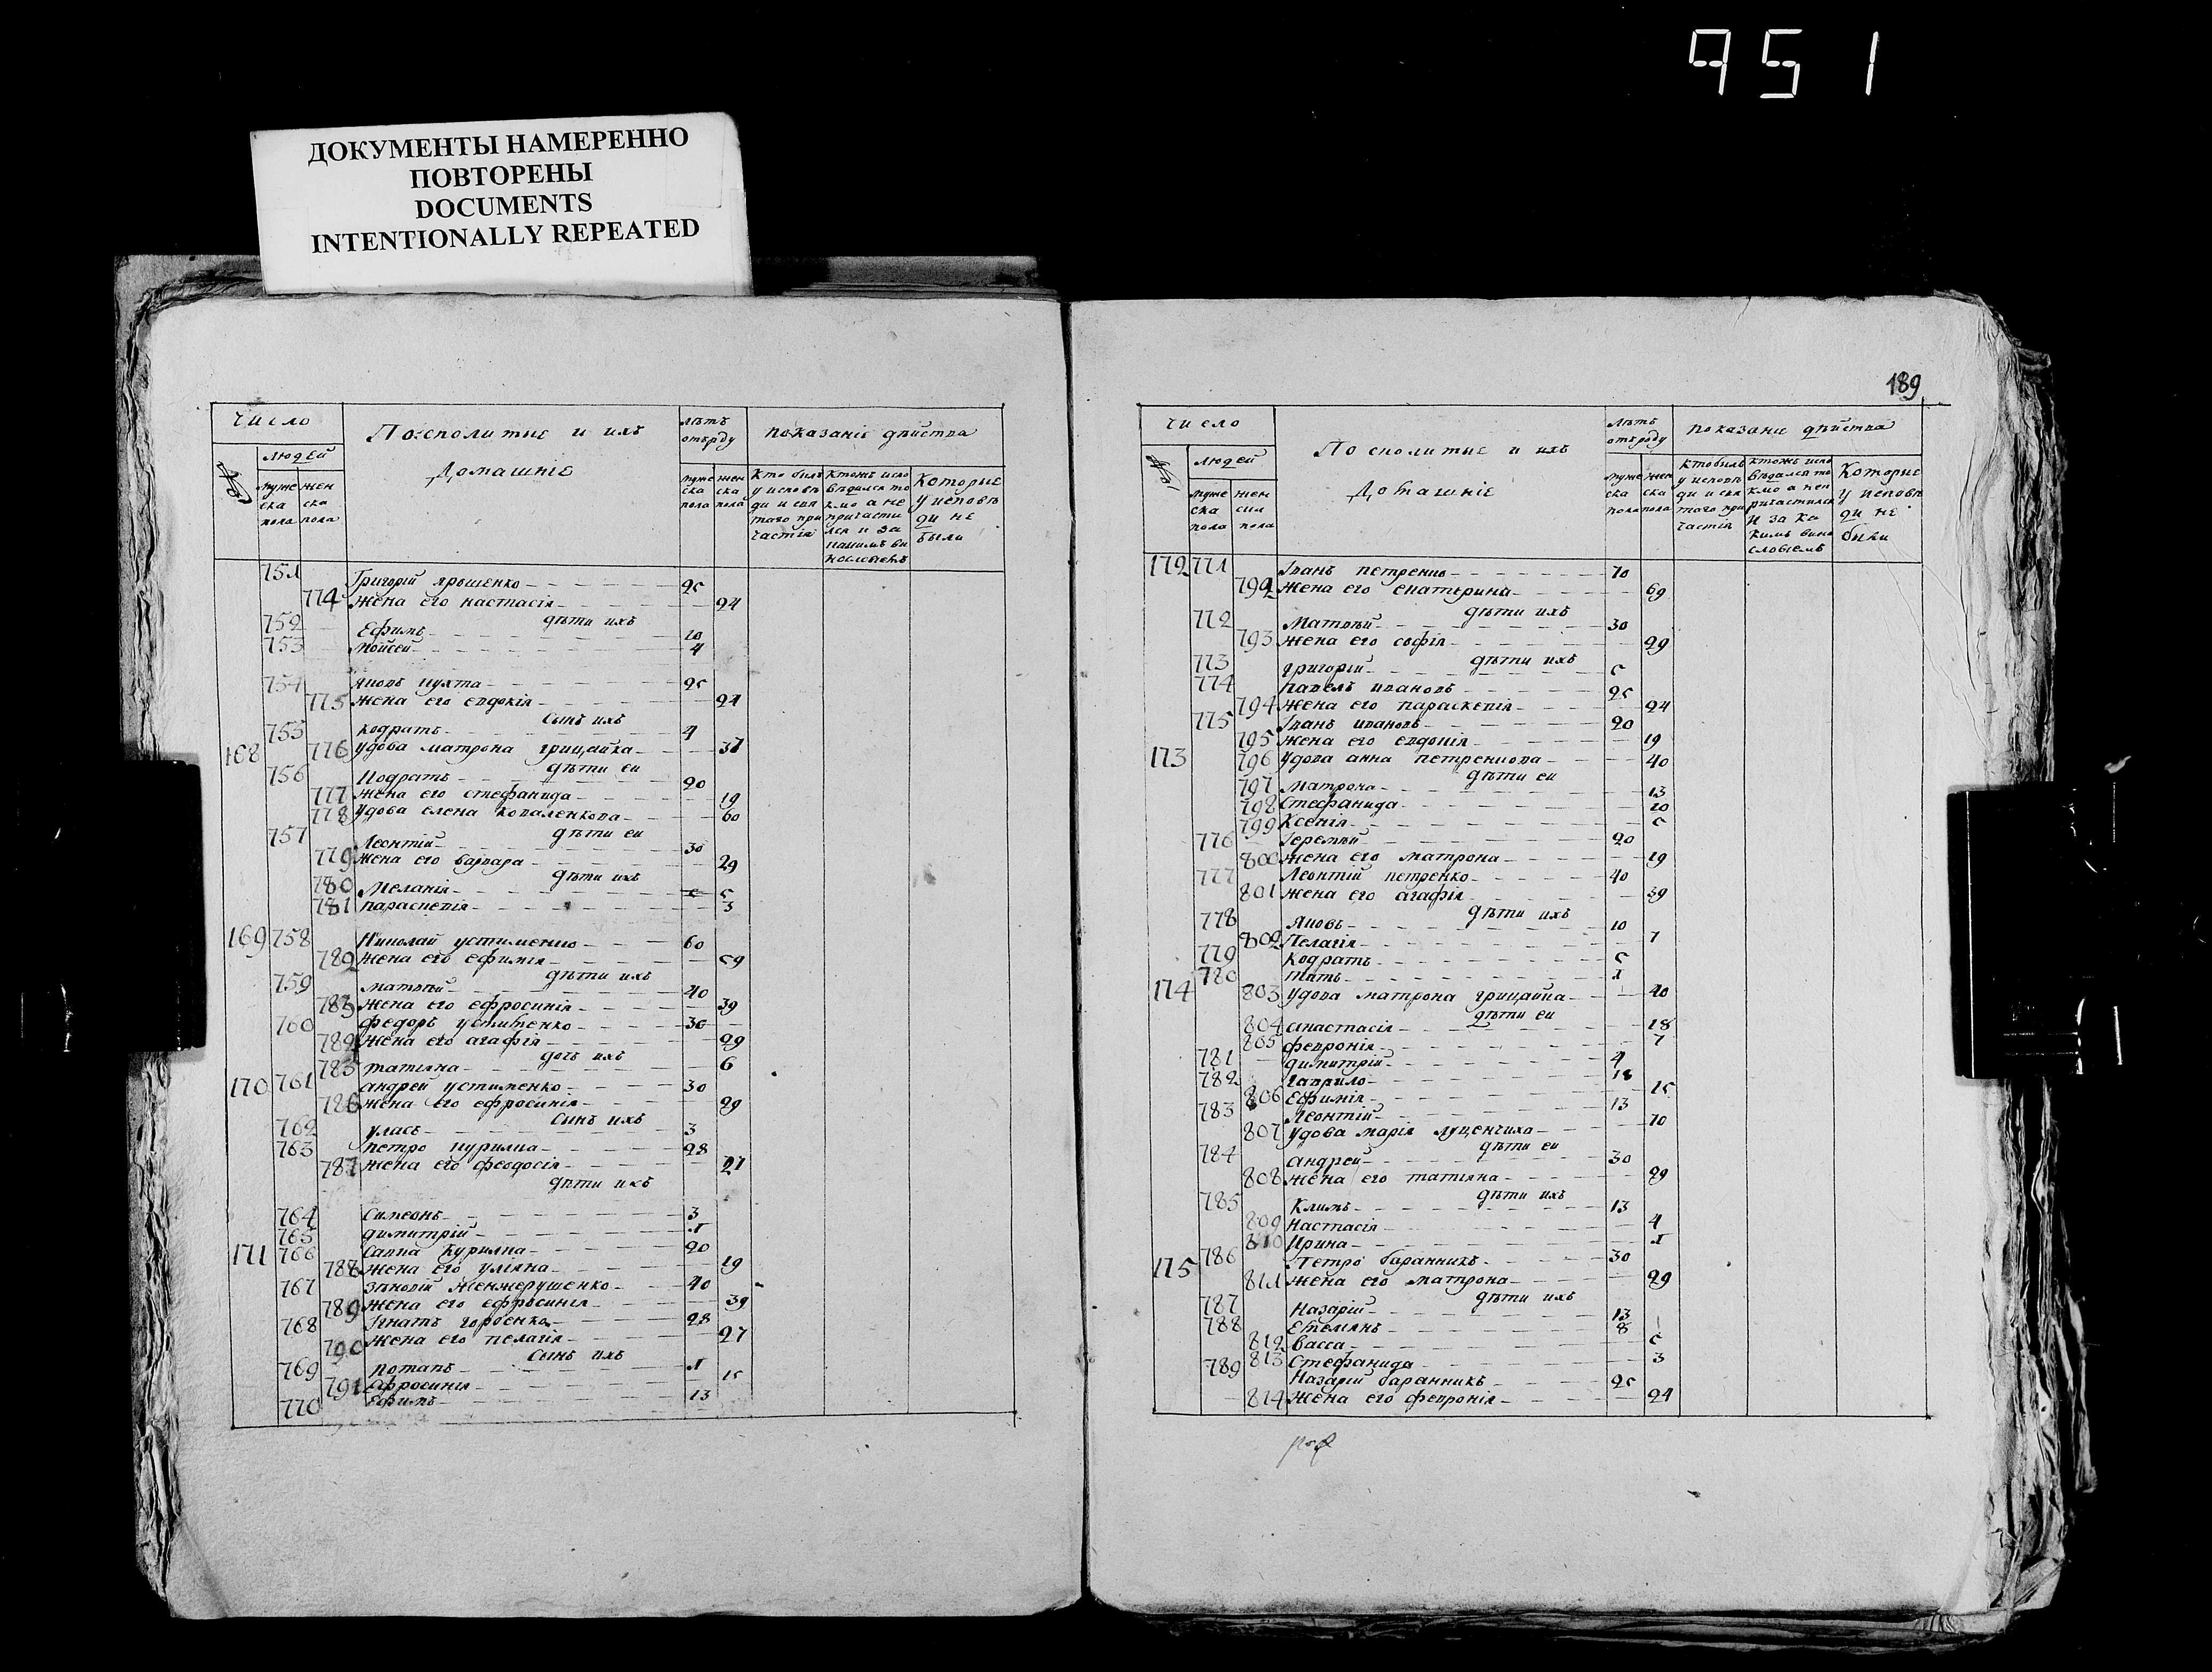 951
ДОКУМЕНТЫ НАМЕРЕННО
ПОВТОРЕНЫ
DOCUMENTS
INTENTIONALLY REPEATED
Число
людей
муже ска пола
жен ска пола
Посполитые и ихъ
Домашніе
лѣтъ отъ роду
муже ска пола
жен ска пола
показаніе дѣйства
Кто былъ у исповѣди и святаго причастія
Которые у исповѣди не были
751 Григорій ярошенко 25
774 жена его настасія 24
дѣти ихъ
752 Ефимъ 10
753 Мойсей 4
754 яковъ кухта 25
775 жена его евдокія 24
Сынъ ихъ
755 кодратъ 4
168 776 удова матрона грицайка 37
дѣти еи
756 Кодратъ 20
777 жена его стефанида 19
778 удова елена коваленкова 60
дѣти еи
757 Леонтій 30
779 жена его варвара 29
дѣти ихъ
780 Меланія 5
781 параскевія 3
169 758 Николай устименко 60
782 жена его ефимія 59
дѣти ихъ
759 матвѣй 40
783 жена его ефросинія 39
760 федоръ устименко 30
784 жена его агафія 29
дочъ ихъ
785 татіяна 6
170 761 андрей устименко 30
786 жена его ефросинія 29
Сынъ ихъ
762 уласъ 3
763 петро курилка 28
787 жена его феодосія 27
дѣти ихъ
764 Симеонъ 3
765 димитрій 1
171 766 Савка Курилка 20
788 жена его уліяна 19
767 Зѣновій женжерушенко 40
789 жена его ефросинія 39
768 Игнатъ горбенко 28
790 жена его пелагія 27
Сынъ ихъ
769 потапъ 1
791 Ефросинія 15
770 Ефимъ 13
189
Число
людей
муже ска пола
жен ска пола
Посполитые и ихъ
Домашніе
лѣтъ отъ роду
муже ска пола
жен ска пола
показание дѣйства
кто былъ у исповѣди и святаго причастія
Которые у исповѣди не были
172 771 Іванъ петренко 70
792 жена его екатерина 69
дѣти ихъ
772 Матвѣй 30
793 жена его софія 29
дѣти ихъ
773 григорій 5
774 павелъ ивановъ 25
794 жена его параскевія 24
775 Іванъ ивановъ 20
795 жена его евдокія 19
173 796 удова анна петренкова 40
дѣти еи
797 матрона 13
798 стефанида 10
799 Ксенія 5
776 Іеремѣй 20
800 жена его матрона 19
777 Леонтій петренко 40
801 жена его агафія 39
дѣти ихъ
778 яковъ 10
802 Пелагія 7
779 Кодратъ 5
780 титъ 1
174 803 удова матрона грицайка 40
дѣти еи
804 анастасія 18
805 февронія 7
781 димитрій 4
782 гаврило 18
806 Ефимія 15
783 Леонтій 13
807 удова марія луценчиха 70
дѣти еи
784 андрей 30
808 жена его татіяна 29
дѣти ихъ
785 Климъ 13
809 Настасія 4
810 Ирина 1
175 786 Петро баранникъ 30
811 жена его матрона 29
дѣти ихъ
787 Назарій 13
788 Емеліянъ 8
812 васса 5
813 Стефанида 3
789 Назарій баранникъ 25
814 жена его февронія 24